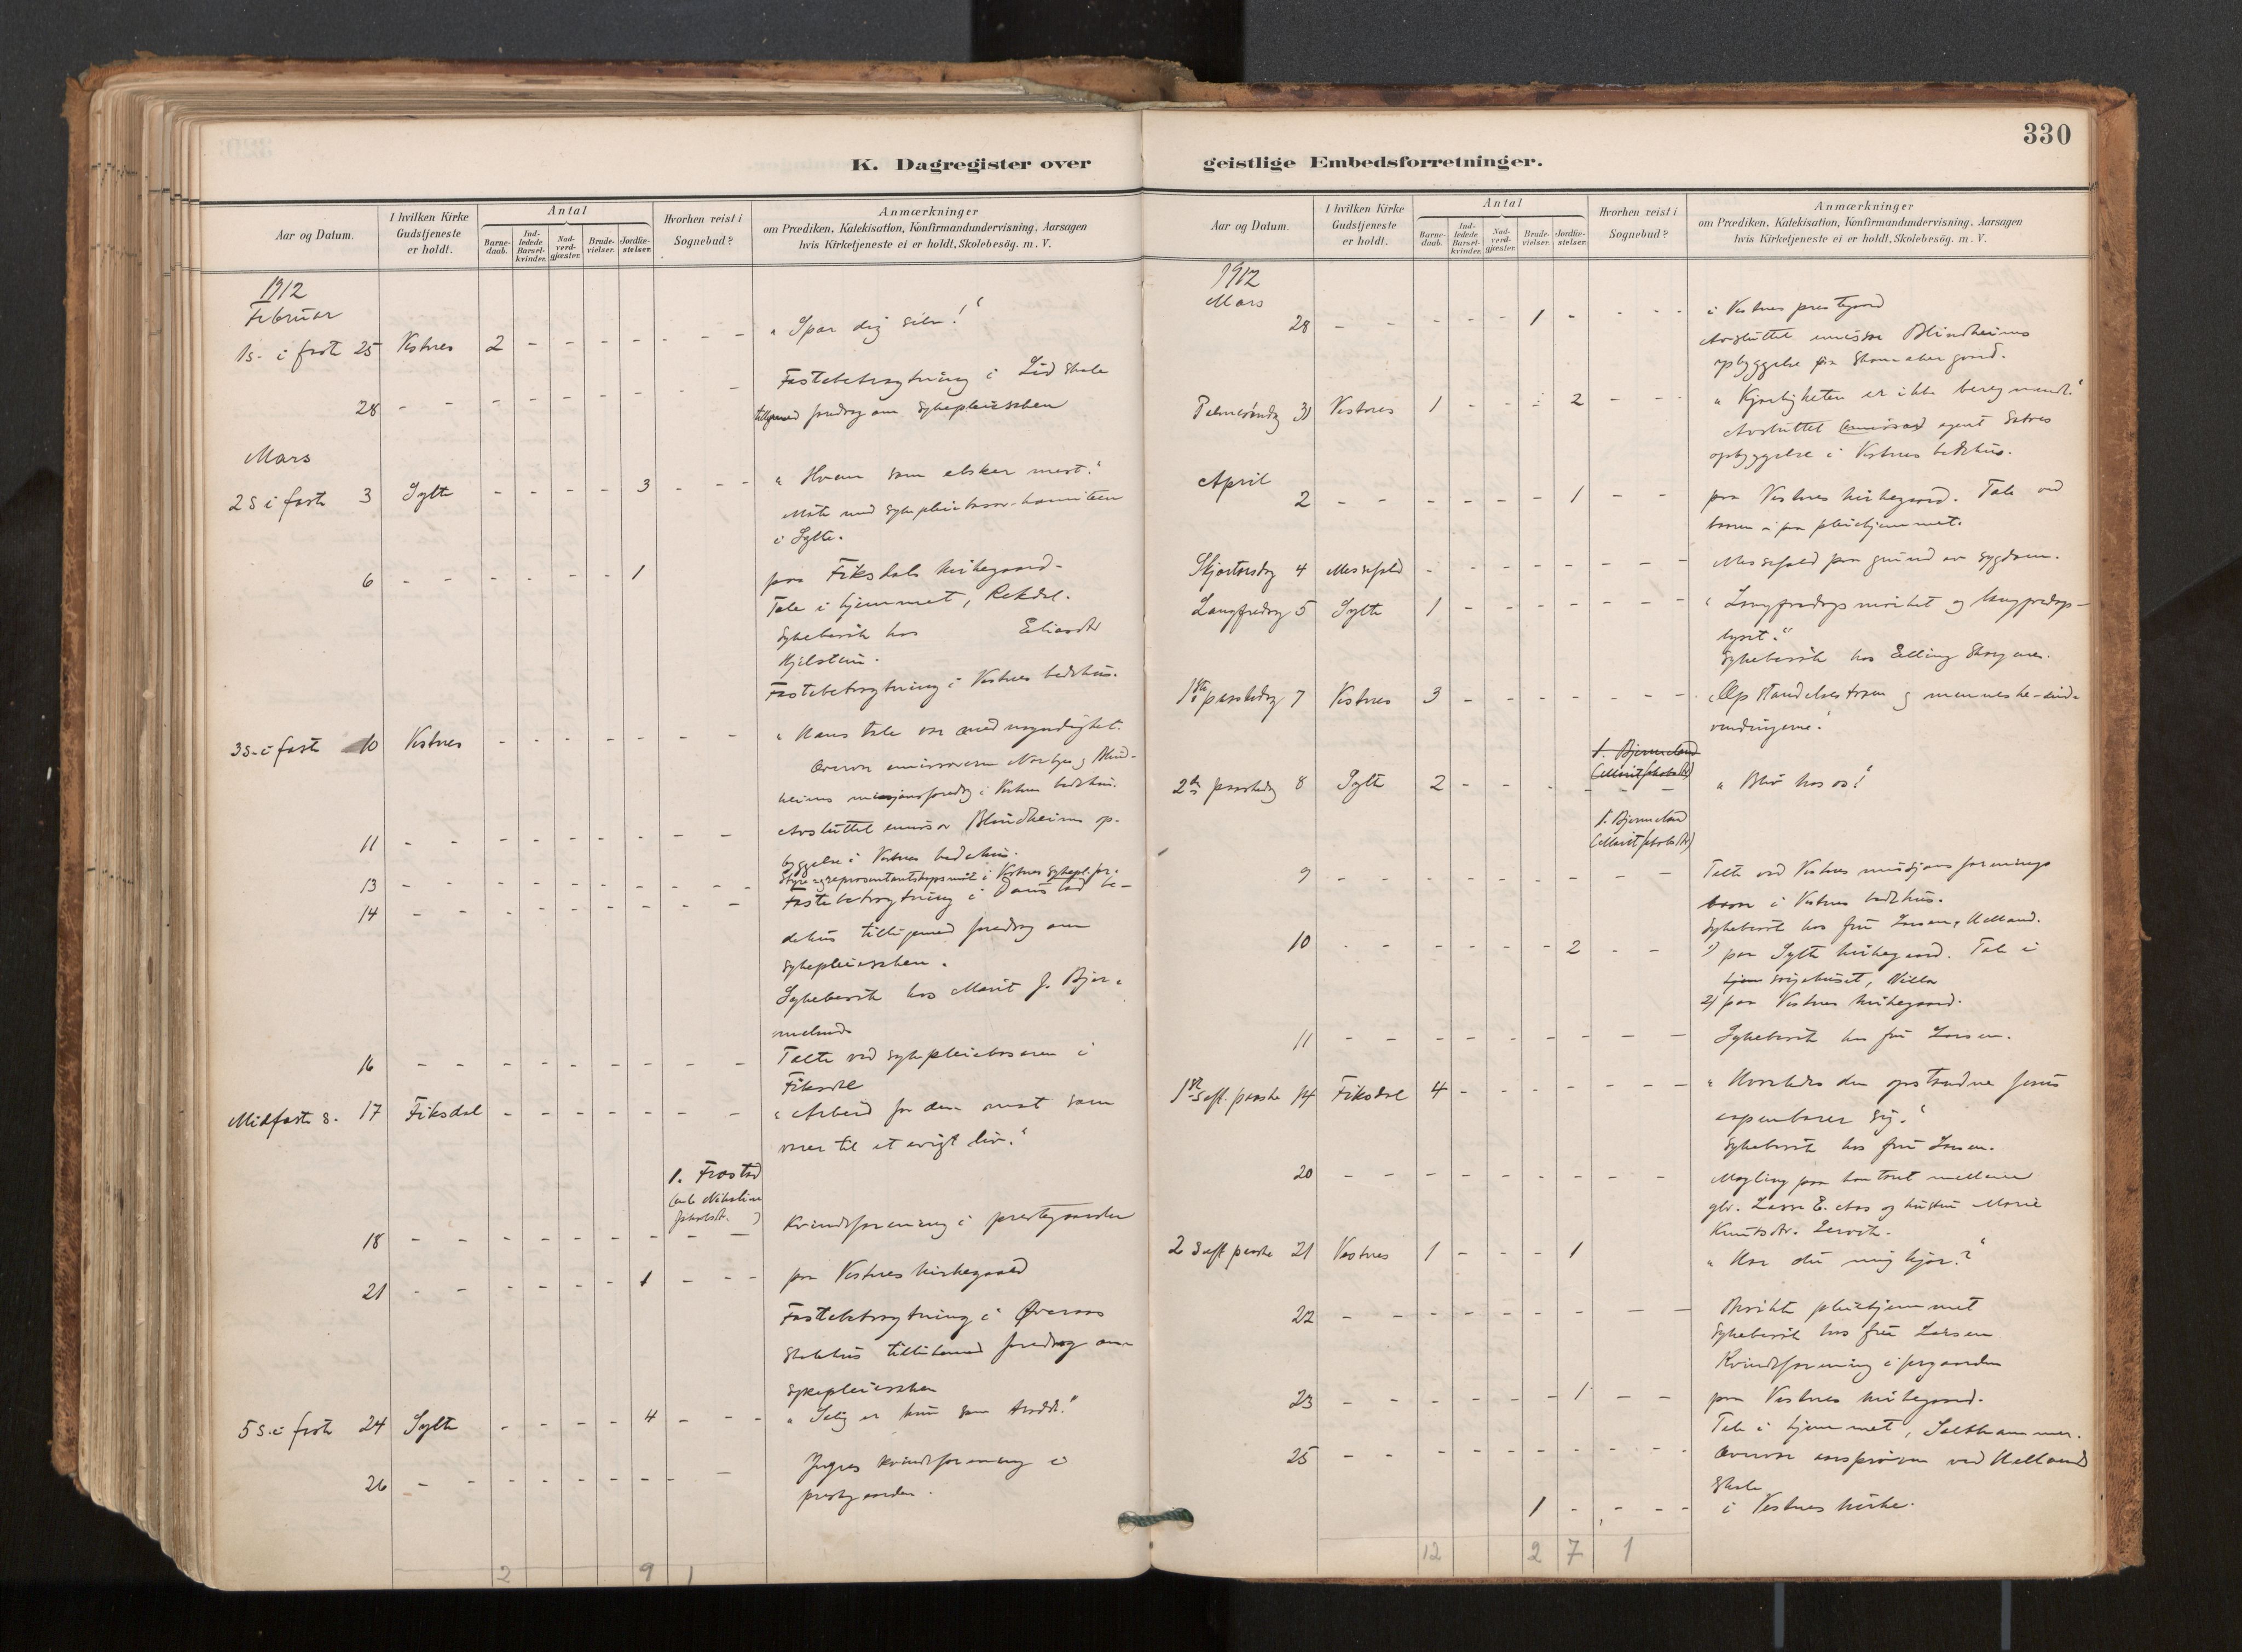 K. Dagregister over
Aar og Datum.
I hvilken Kirke Gudstjeneste er holdt.
Antal
Barne-daab.
Ind-ledede Barsel-kvinder.
Nad-verd-gjæster.
Brude-vielser.
Jordfæ-stelser.
Hvorhen reist i Sognebud?
Anmærkninger
om Prædiken, Katekisation, Konfirmandundervisning, Aarsagen
hvis Kirketjeneste ei er holdt, Skolebesög. m. V.
1912
Februar
1 s. i faste 25 Vestnes 2 - - - - - - - „Spar dig selv!“
28 - - - - - - - - - Fastebetragtning i Lid skole
tilligemed foredrag om sykepleiesaken
Mars
2 s i faste 3 Sylte - - - - 3 - - - „Hvem som elsker mest.“
Møte med sykepleiekasse-komiteen
i Sylte.
6 - - - - - - - 1 paa Fiksdals kirkegaard.
Tale i hjemmet, Rekdal.
Sykebesøk hos
Kjelstein.
Fastebetragtning i Vestnes bedehus.
3 s. i faste 10 Vestnes - - - - - - - - „Hans tale var med myndighet.
Overvar emissærerne og Blind-
heims misjonsforedrag i Vestnes bedehus.
11 - - - - - - - - - Avsluttet emissær Blindheims op-
byggelse i Vestnes bedehus.
13 - - - - - - - - - Styre og representantskapsmøte i Vestnes sykepl.for.
14 - - - - - - - - - Fastebetragtning i be-
dehus tilligemed foredrag om
sykepleiesaken.
Sykebesøk hos Marit J. Bjer-
meland
16 - - - - - - - - - Talte ved sykepleiebasaren i
Fiksdal
Midfaste s. 17 Fiksdal - - - - - - - - „Arbeid for den mat som
varer til et evigt liv.“
1. Frostad
18 - - - - - - - - - Kvindeforening i prestegaarden
21 - - - - - - 1 - - - paa Vestnes kirkegaard
Fastebetragtning i Øveraas
skolehus tillikemed foredrag om
sykepleiesaken
5 s. i faste 24 Sylte - - - - 4 - - - „Salig er hun som trodde.“
26 - - - - - - - - - Yngres kvindeforening i
prestegaarden.
2 9 1
330
geistlige Embedsforretninger.
Aar og Datum.
I hvilken Kirke Gudstjeneste er holdt.
Antal
Barne-daab.
Ind-ledede Barsel-kvinder.
Nad-verd-gjæster.
Brude-vielser.
Jordfæ-stelser.
Hvorhen reist i Sognebud?
Anmærkninger
om Prædiken, Katekisation, Konfirmandundervisning, Aarsagen
hvis Kirketjeneste ei er holdt, Skolebesög. m. V.
1912
Mars
28 - - - - - 1 - - - - i Vestnes prestegaard
Avsluttet emissær Blindheims
opbyggelse paa
Palmesøndag 31 Vestnes 1 - - - 2 - - - „Kjærligheten er ikke beregnende.“
Avsluttet agent
opbyggelse i Vestnes bedehus.
April
2 - - - - - - - 1 - - paa Vestnes kirkegaard. Tale ved
baaren i paa pleiehjemmet.
Skjærtorsdag 4 Messefald - - - - - - - - Messefald paa grund av sygdom.
Langfredag 5 Sylte 1 - - - - - - - „Langfredagsmørket og langfredags-
lyset.“
Sykebesøk hos Elling
1ste paaskedag 7 Vestnes 3 - - - - - - - „Opstandelsestroen og menneske-ind-
vendingerne.“
1. Bjermeland
(Marit Jakobsdtr)
2den paaskedag 8 Sylte 2 - - - - - - „Bliv hos os!“
1. Bjermeland
(Marit Jakobsdtr)
9 - - - - - - - - - Talte ved Vestnes misjonsforenings
basar i Vestnes bedehus.
Sykebesøk hos fru Larsen, Helland.
10 - - - - - - 2 - - 1) paa Sylte kirkegaard. Tale i
hjem sørgehuset, Villa
2) paa Vestnes kirkegaard.
11 - - - - - - - - - Sykebesøk hos fru Larsen.
1ste s. eft. paaske 14 Fiksdal 4 - - - - - - - „Hvorledes den opstandne Jesus
aapenbarer sig.“
Sykebesøk hos fru Larsen.
20 - - - - - - - - - Megling paa kontoret mellem
gbr. Lasse E. Aas og hustru Marie
Knutsdtr.
2 s eft paaske 21 Vestnes 1 - - - 1 „Har du mig kjær?“
22 - - - - - - - - - Besøkte pleiehjemmet
Sykebesøk hos fru Larsen
Kvindeforening i prgaarden
23 - - - - - - 1 - - paa Vestnes kirkegaard.
Tale i hjemmet, Salthammer.
25 - - - - - - - - - Overvar aarsprøven ved Helland
skole
1 - - - - i Vestnes kirke.
12 2 7 1